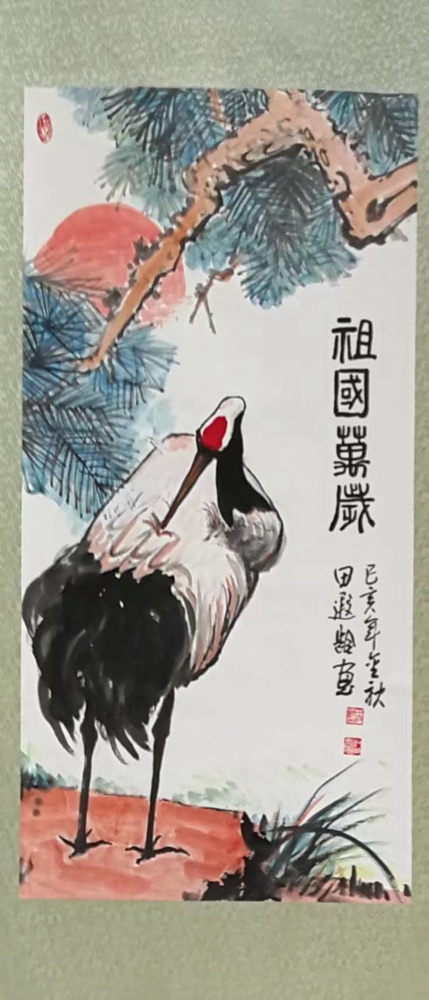 祖國萬歲
己亥年金秋
田遐齡画